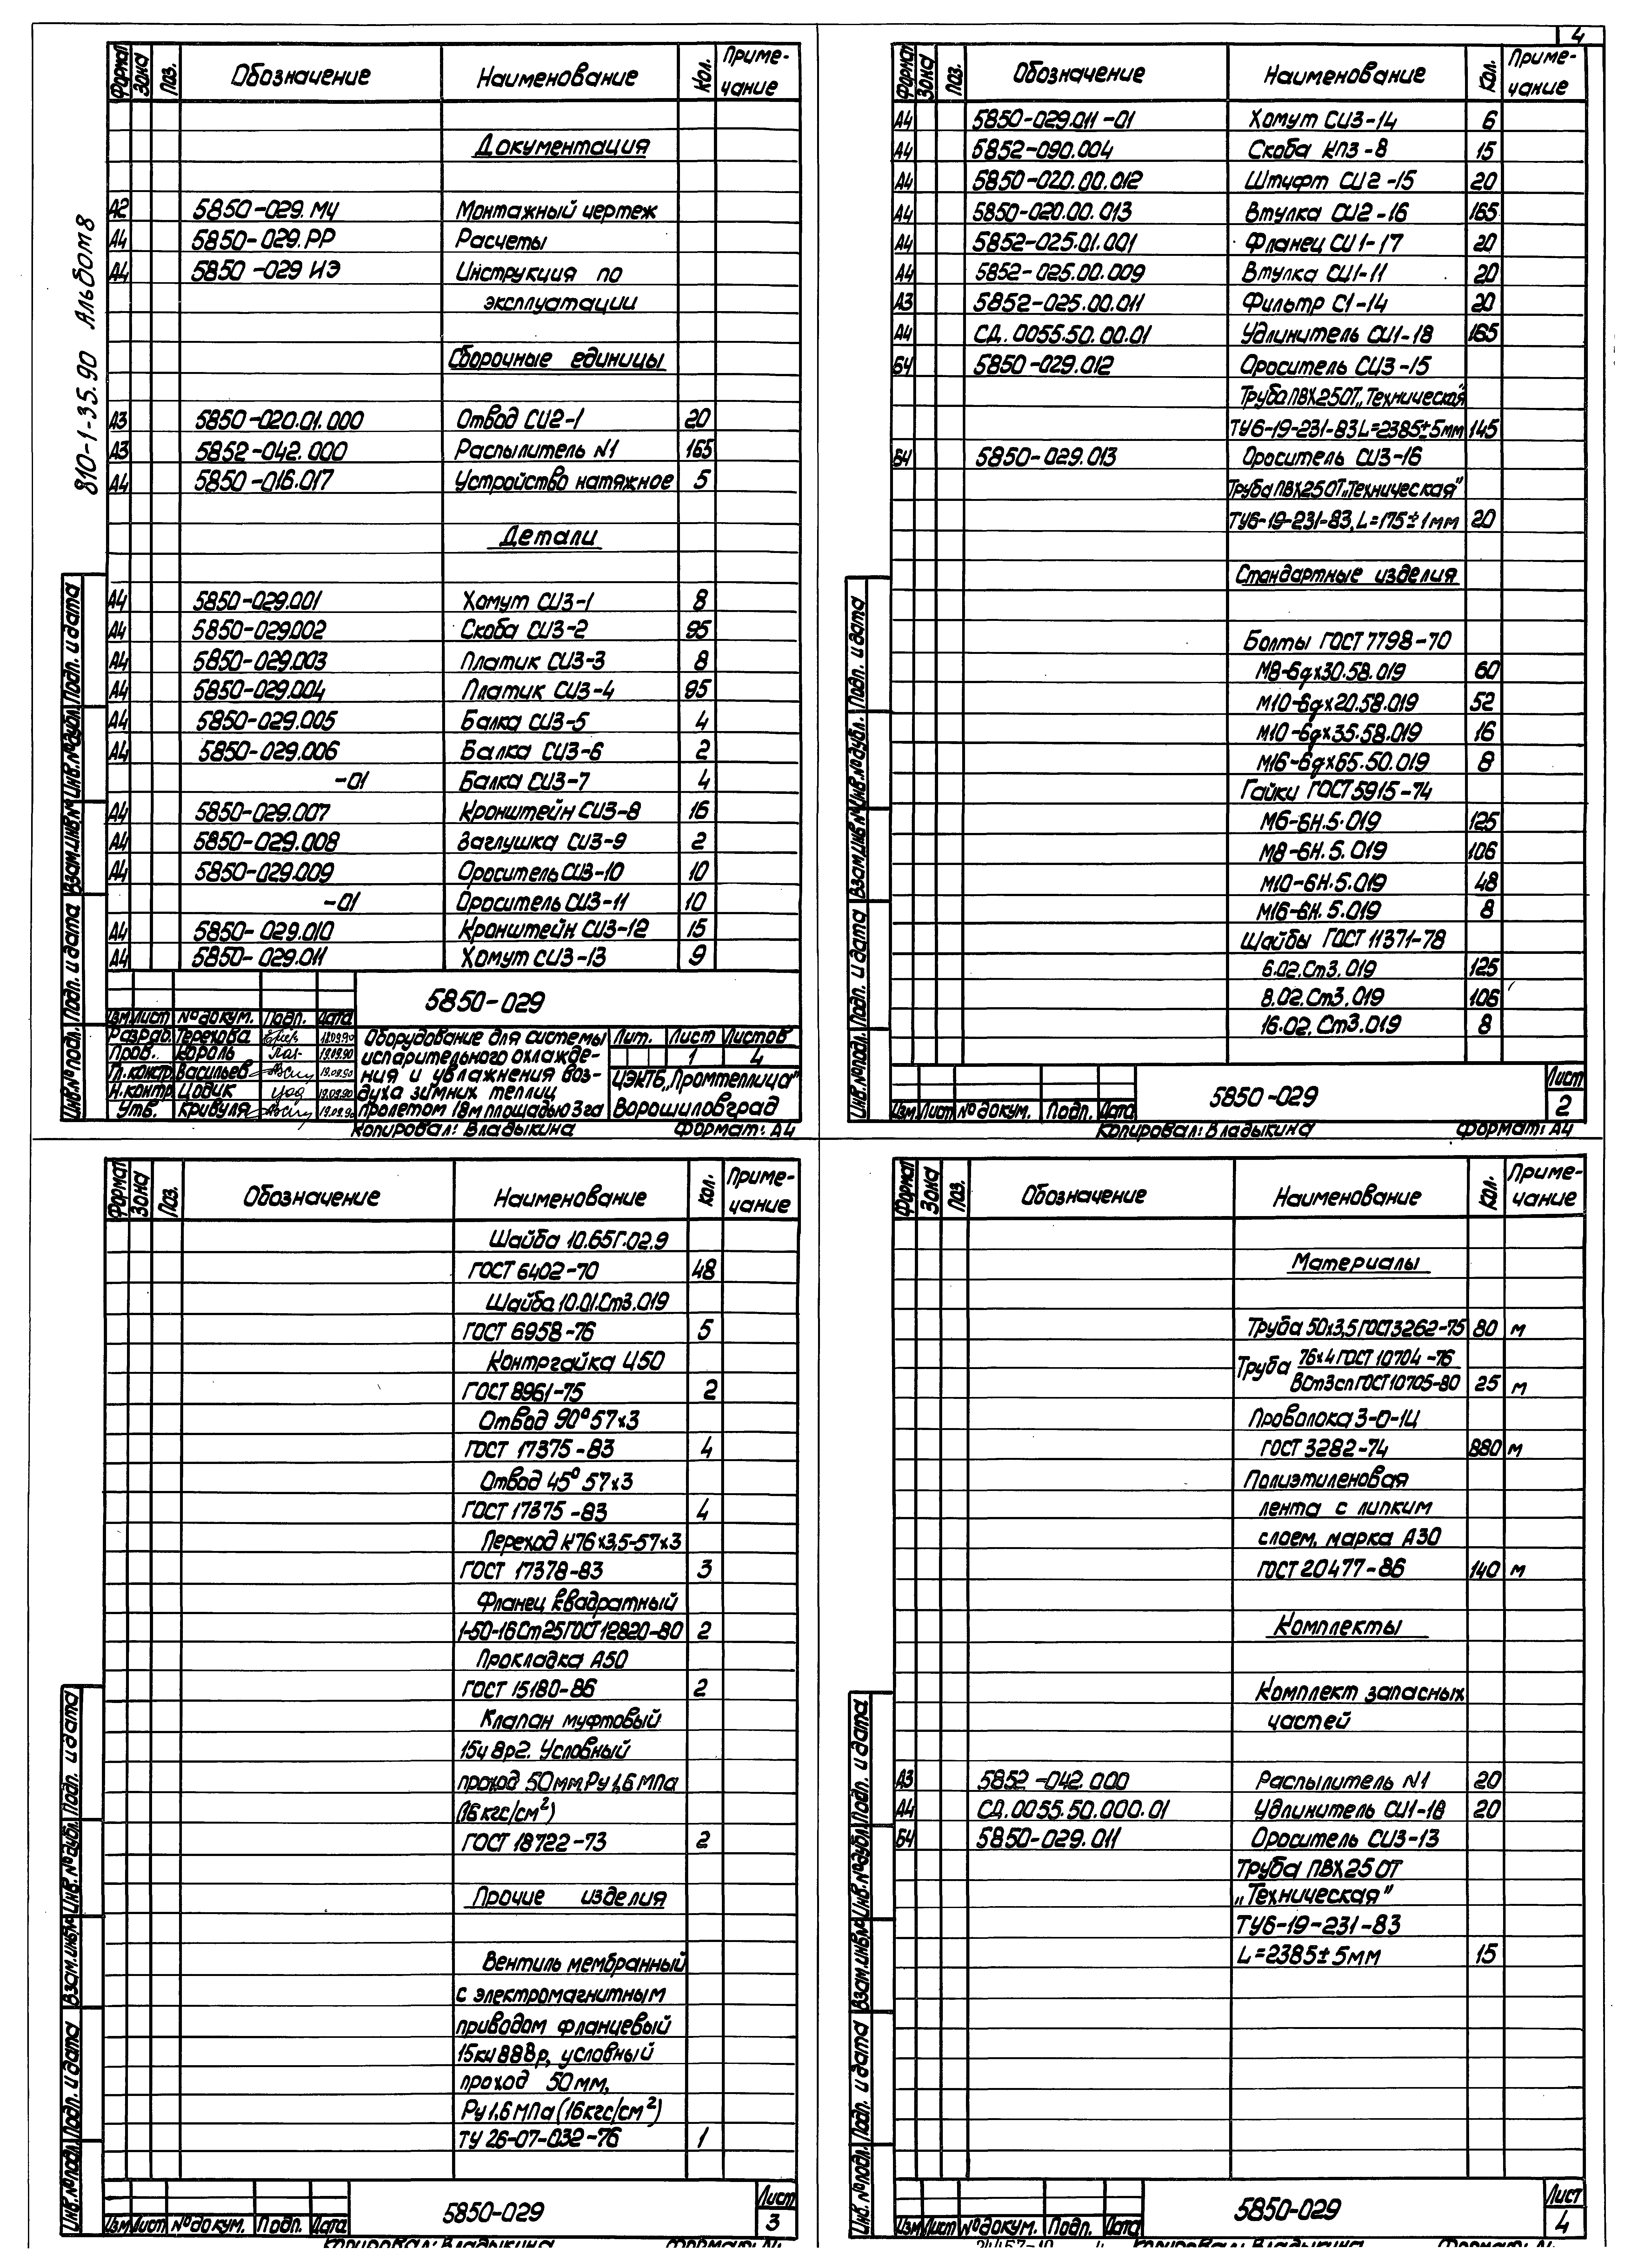 4
810-1-35.90 Альбом 8
Формат Зона Поз. Обозначение Наименование Кол. Приме-
чание
Документация
А2 5850-029.МЧ Монтажный чертеж
А4 5850-029.РР Расчеты
А4 5850-029 ИЭ Инструкция по
эксплуатации
Сборочные единицы
А3 5850-020.01.000 Отвод СИ2-1 20
А3 5852-042.000 Распылитель №1 165
А4 5850-016.017 Устройство натяжное 5
Детали
А4 5850-029.001 Хомут СИ3-1 8
А4 5850-029.002 Скоба СИ3-2 95
А4 5850-029.003 Платик СИ3-3 8
А4 5850-029.004 Платик СИ3-4 95
А4 5850-029.005 Балка СИ3-5 4
А4 5850-029.006 Балка СИ3-6 2
-01 Балка СИ3-7 4
А4 5850-029.007 Кронштейн СИ3-8 16
А4 5850-029.008 Заглушка СИ3-9 2
А4 5850-029.009 Ороситель СИ3-10 10
-01 Ороситель СИ3-11 10
А4 5850-029.010 Кронштейн СИ3-12 15
А4 5850-029.011 Хомут СИ3-13 9
5850-029
Изм Лист № докум. Подп. Дата
Разраб. Терехова
Пров. Король 19.09.90
Гл. констр. Васильев 19.09.90
Н. контр. Цодик 19.09.90
Утв. Кривуля 19.09.90
Оборудование для системы
испарительного охлажде-
ния и увлажнения воз-
духа зимних теплиц
пролетом 18м площадью 3га
Лит. Лист Листов
1 4
ЦЭКТБ „Промтеплица"
Ворошиловград
Инв.№ подл. Подп. и дата Взам.инв.№ Инв.№ дубл. Подп. и дата
Копировал: Владыкина Формат: А4
Формат Зона Поз. Обозначение Наименование Кол. Приме-
чание
А4 5850-029.011-01 Хомут СИ3-14 6
А4 5852-090.004 Скоба КП3-8 15
А4 5850-020.00.012 Штифт СИ2-15 20
А4 5850-020.00.013 Втулка СИ2-16 165
А4 5852-025.01.001 Фланец СИ1-17 20
А4 5852-025.00.009 Втулка СИ1-11 20
А3 5852-025.00.011 Фильтр С1-14 20
А4 СД.0055.50.00.01 Удлинитель СИ1-18 165
Б4 5850-029.012 Ороситель СИ3-15
Труба ПВХ250Т„Техническая"
ТУ6-19-231-83 L=2385±5мм 145
Б4 5850-029.013 Ороситель СИ3-16
Труба ПВХ250Т„Техническая"
ТУ6-19-231-83, L=175±1мм 20
Стандартные изделия
Болты ГОСТ 7798-70
М8-6gх30.58.019 60
М10-6gх20.58.019 52
М10-6gх35.58.019 16
М16-6gх65.50.019 8
Гайки ГОСТ 5915-74
М6-6Н.5.019 125
М8-6Н.5.019 106
М10-6Н.5.019 48
М16-6Н.5.019 8
Шайбы ГОСТ 11371-78
6.02.Ст3.019 125
8.02.Ст3.019 106
16.02.Ст3.019 8
5850-029
Лист
2
Изм Лист № докум. Подп. Дата
Инв.№ подл. Подп. и дата Взам.инв.№ Инв.№ дубл. Подп. и дата
Копировал: Владыкина Формат: А4
Формат Зона Поз. Обозначение Наименование Кол. Приме-
чание
Шайба 10.65Г.02.9
ГОСТ 6402-70 48
Шайба 10.01.Ст3.019
ГОСТ 6958-76 5
Контргайка Ц50
ГОСТ 8961-75 2
Отвод 90° 57х3
ГОСТ 17375-83 4
Отвод 45° 57х3
ГОСТ 17375-83 4
Переход К76х3,5-57х3
ГОСТ 17378-83 3
Фланец квадратный
1-50-16 Ст25 ГОСТ 12820-80 2
Прокладка А50
ГОСТ 15180-86 2
Клапан муфтовый
15ч 8р2. Условный
проход 50мм,Ру 1,6 МПа
(16 кгс/см²)
ГОСТ 18722-73 2
Прочие изделия
Вентиль мембранный
с электромагнитным
приводом фланцевый
15кч 888р, условный
проход 50 мм,
Ру 1,6 МПа (16кгс/см²)
ТУ 26-07-032-76 1
5850-029
Лист
3
Изм Лист № докум. Подп. Дата
Инв.№ подл. Подп. и дата Взам.инв.№ Инв.№ дубл. Подп. и дата
Копировал: Владыкина Формат: А4
Формат Зона Поз. Обозначение Наименование Кол. Приме-
чание
Материалы
Труба 50х3,5 ГОСТ 3262-75 80 м
Труба 76х4 ГОСТ 10704-76
ВСт3сп ГОСТ 10705-80 25 м
Проволока 3-0-14
ГОСТ 3282-74 880 м
Полиэтиленовая
лента с липким
слоем, марка А30
ГОСТ 20477-86 140 м
Комплекты
Комплект запасных
частей
А3 5852-042.000 Распылитель №1 20
А4 СД.0055.50.000.01 Удлинитель СИ1-18 20
Б4 5850-029.011 Ороситель СИ3-13
Труба ПВХ250Т
„Техническая"
ТУ6-19-231-83
L=2385±5мм 15
5850-029
Лист
4
Изм Лист № докум. Подп. Дата
Инв.№ подл. Подп. и дата Взам.инв.№ Инв.№ дубл. Подп. и дата
Копировал: Владыкина Формат: А4